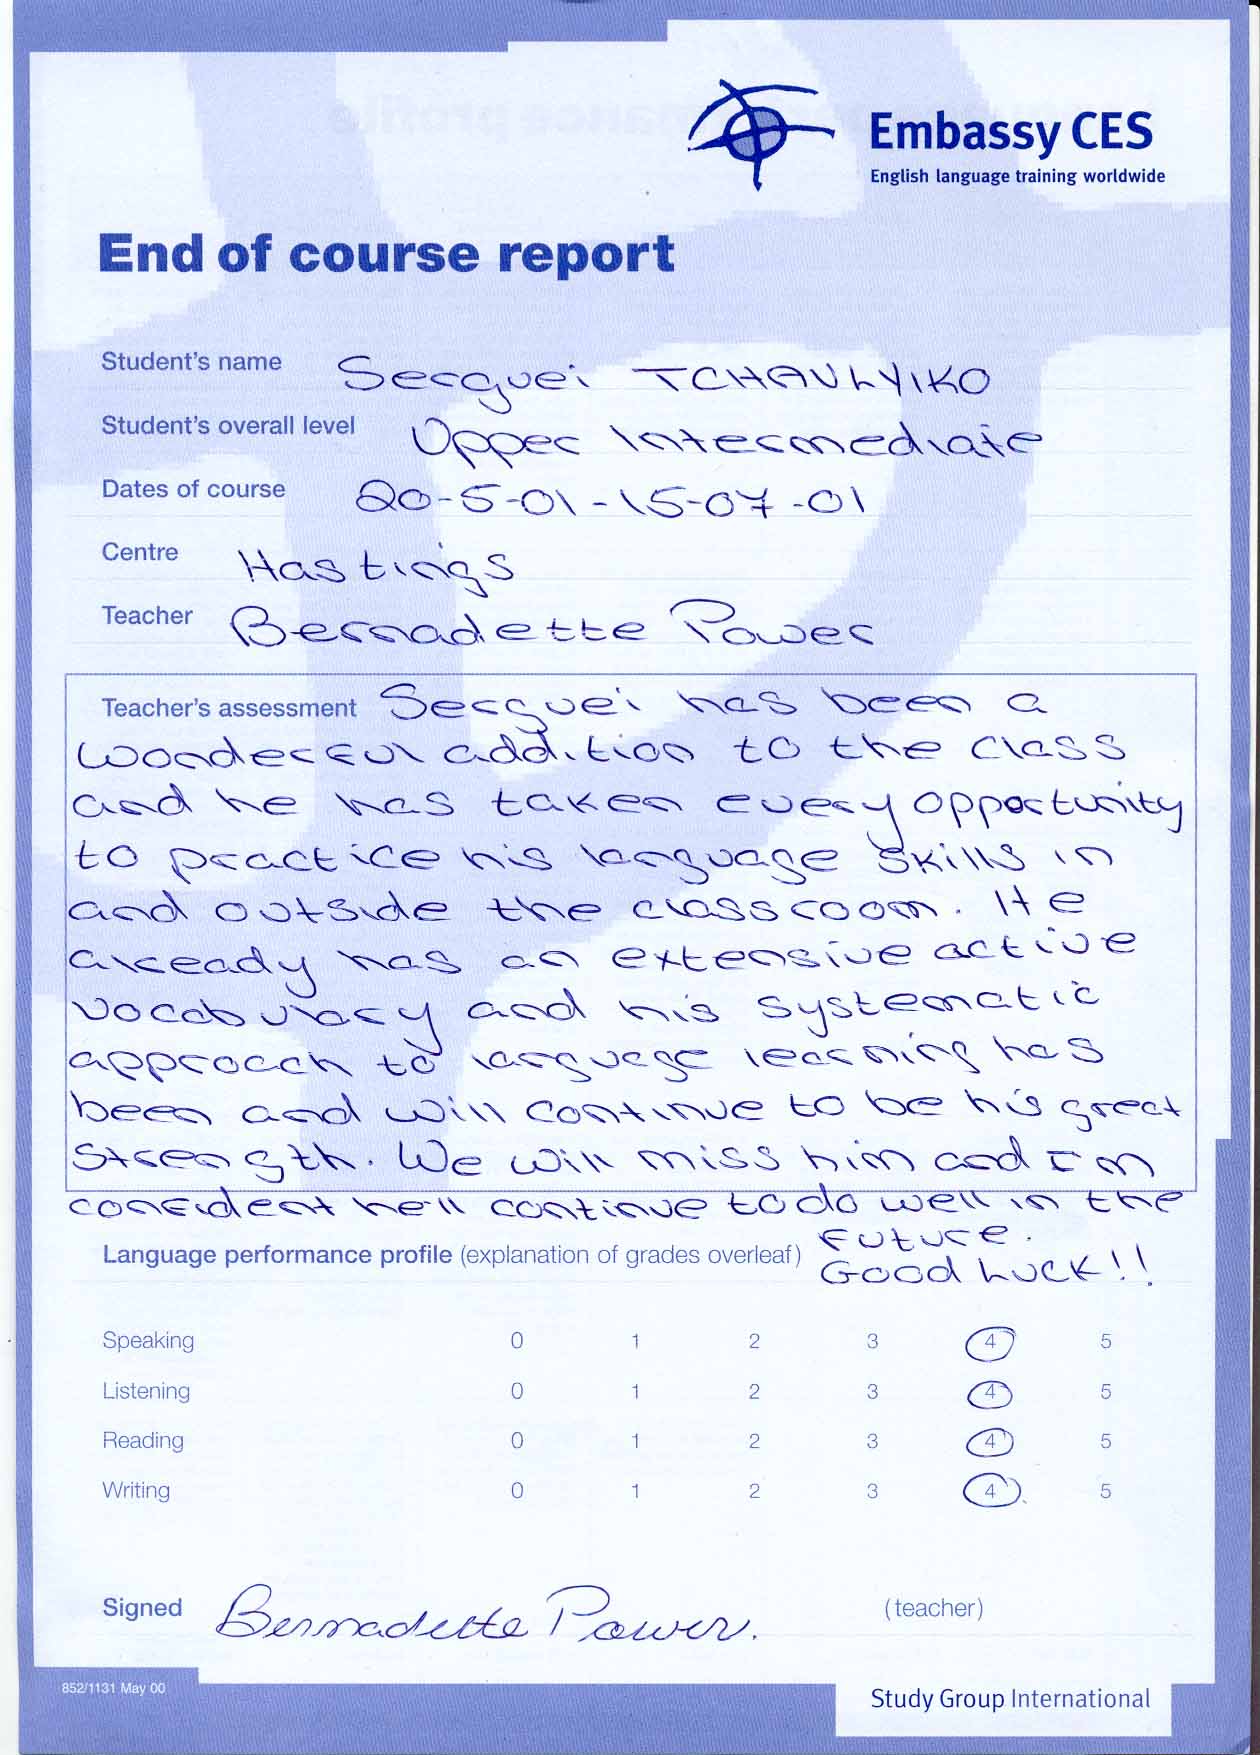 Embassy CES
English language training worldwide
End of course report
Student's name Serguei TCHAULYIKO
Student's overall level Upper Intermediate
Dates of course 20-5-01 - 15-07-01
Centre Hastings
Teacher Bernadette Power
Teacher's assessment Serguei has been a
wonderful addition to the class
and he has taken every opportunity
to practice his language skills in
and outside the classroom. He
already has an extensive active
vocabulary and his systematic
approach to language learning has
been and will continue to be his great
strength. We will miss him and I'm
confident he'll continue to do well in the
future.
Language performance profile (explanation of grades overleaf)
Good Luck!!
Speaking 0 1 2 3 4 5
Listening 0 1 2 3 4 5
Reading 0 1 2 3 4 5
Writing 0 1 2 3 4 5
Signed Bernadette Power. (teacher)
852/1131 May 00
Study Group International